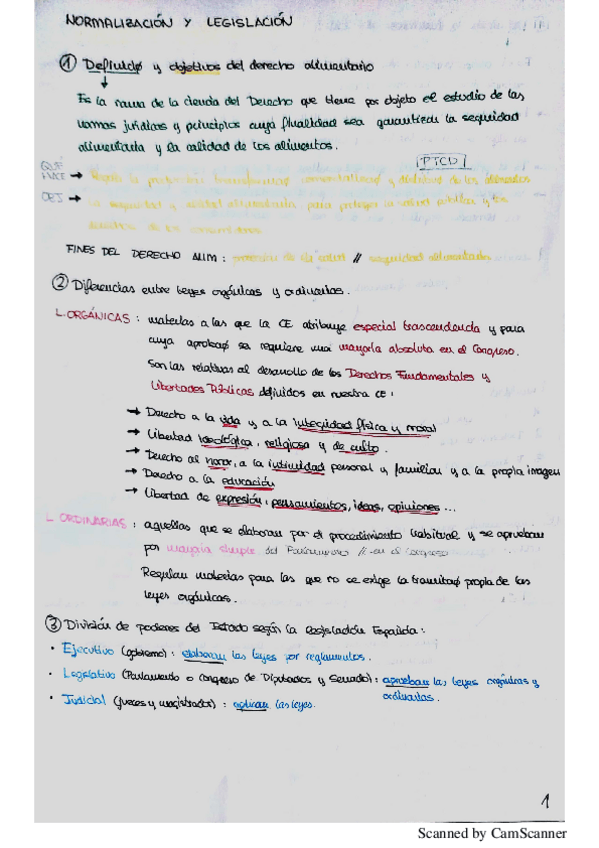 NORMALIZACIÓN Y LEGISLACIÓN
① Definició y objetivos del derecho alimentario
Es la rama de la ciencia del Derecho que tiene por objeto el estudio de las
normas jurídicas y principios cuya finalidad sea garantizar la seguridad
alimentaria y la calidad de los alimentos.
PTCD
QUÉ HACE → Regula la producció, transformació, comercializació y distribució de los alimentos
OBJ → La seguridad y calidad alimentaria para proteger la salud pública y los
derechos de los consumidores
FINES DEL DERECHO ALIM: protección de la salud // seguridad alimentaria
② Diferencias entre leyes orgánicas y ordinarias.
L. ORGÁNICAS: materias a las que la CE atribuye especial trascendencia y para
cuya aprobació se requiere una mayoría absoluta en el Congreso.
Son las relativas al desarrollo de los Derechos Fundamentales y
Libertades Públicas definidos en nuestra CE:
→ Derecho a la vida y a la integridad física y moral
→ Libertad ideológica, religiosa y de culto.
→ Derecho al honor, a la intimidad personal y familiar y a la propia imagen
→ Derecho a la educación
→ Libertad de expresión: pensamientos, ideas, opiniones...
L. ORDINARIAS: aquellas que se elaboran por el procedimiento habitual y se aprueban
por mayoría simple del Parlamento // en el Congreso
Regulan materias para las que no se exige la tramitació propia de las
leyes orgánicas.
③ División de poderes del Estado según la Legislación Española:
• Ejecutivo (gobierno): elaboran las leyes por reglamentos.
• Legislativo (Parlamento o Congreso de Diputados y Senado): aprueban las leyes orgánicas y
ordinarias.
• Judicial (jueces y magistrados): aplican las leyes.
1
Scanned by CamScanner